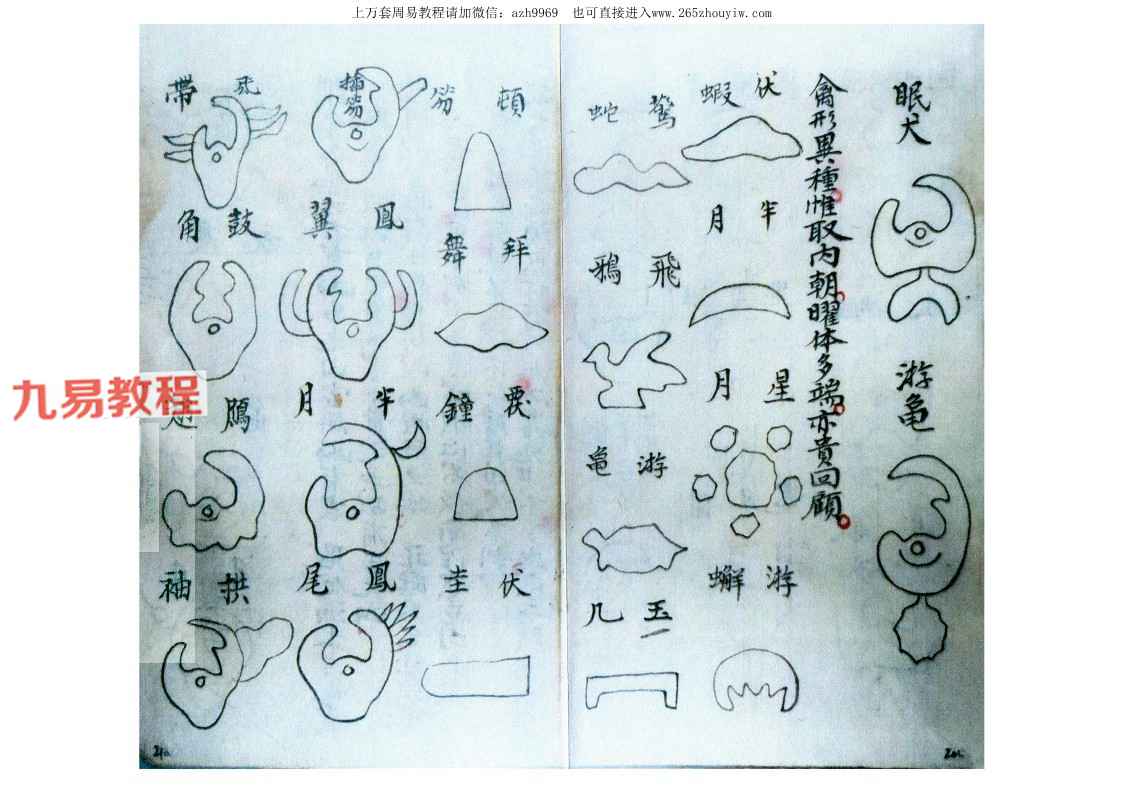 上万套周易教程请加微信：azh9969　也可直接进入www.265zhouyiw.com
眠犬
游亀
禽形異種惟取内朝曜体多端亦貴回顧
伏蝦
半月
星月
游蠏
驚蛇
飛鴉
游亀
玉几
頓笏
拜舞
鐘
伏圭
插笏
鳳翼
半月
鳳尾
帶
鼓角
鵰翅
拱袖
九易教程